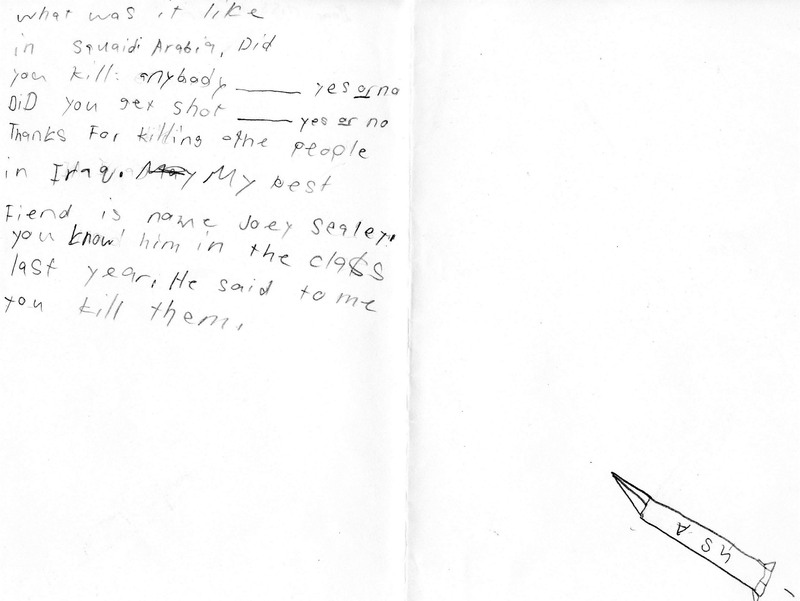 what was it like
in Squaidi Arabia, Did
you kill: anybody ______ yes or no
DiD you get shot ______ yes or no
Thanks For killing othe people
in Iraq. May My best
Fiend is name Joey Sealey,
you know him in the class
last year, He said to me
you kill them,
USA